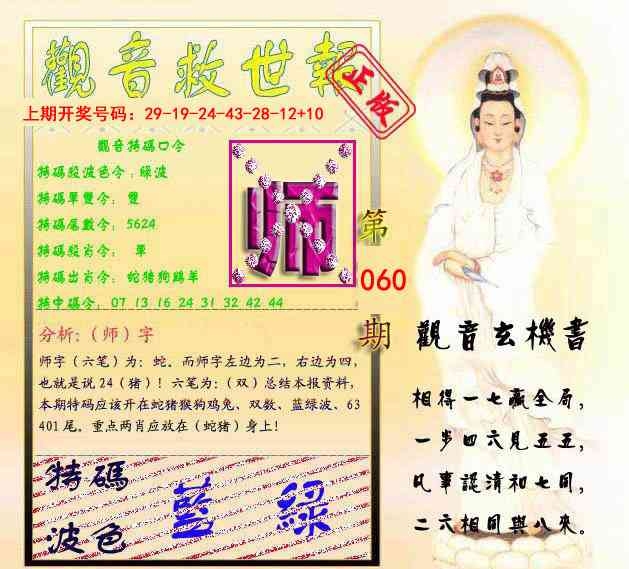 觀音救世報
正版
上期开奖号码：29-19-24-43-28-12+10
觀音特碼口令
特碼段波色令：綠波
特碼單雙令： 雙
特碼尾數令： 5624
特碼段肖令： 單
特碼出肖令： 蛇猪狗鷄羊
特中碼令： 07 13 16 24 31 32 42 44
师
第
060
期
分析:（师）字
师字（六笔）为：蛇。而师字左边为二，右边为四，
也就是说24（猪）！六笔为：（双）总结本报资料，
本期特码应该开在蛇猪猴狗鸡兔、双数、蓝绿波、63
401尾。重点两肖应放在（蛇猪）身上！
特碼
波色
藍 綠
觀音玄機書
相得一七贏全局，
一步四六見五五，
凡事認清和七同，
二六相同與八來。